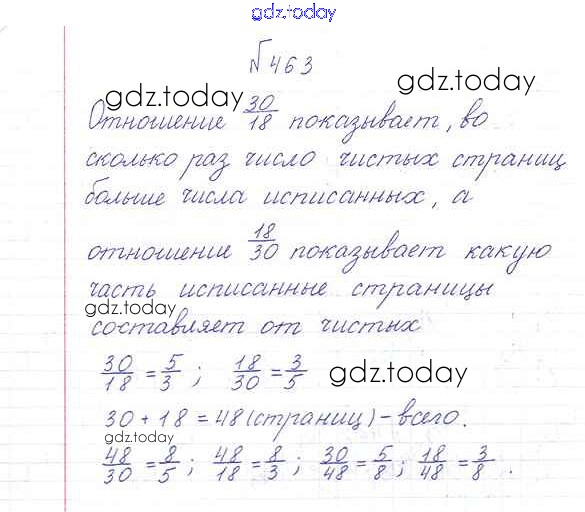 gdz.today
№ 463
gdz.today
gdz.today
Отношение 30/18 показывает, во
сколько раз число чистых страниц
больше числа исписанных, а
отношение 18/30 показывает какую
часть исписанные страницы
gdz.today
составляет от чистых
30/18 = 5/3 ; 18/30 = 3/5
gdz.today
30 + 18 = 48 (страниц) - всего.
gdz.today
48/30 = 8/5 ; 48/18 = 8/3 ; 30/48 = 5/8 ; 18/48 = 3/8 .